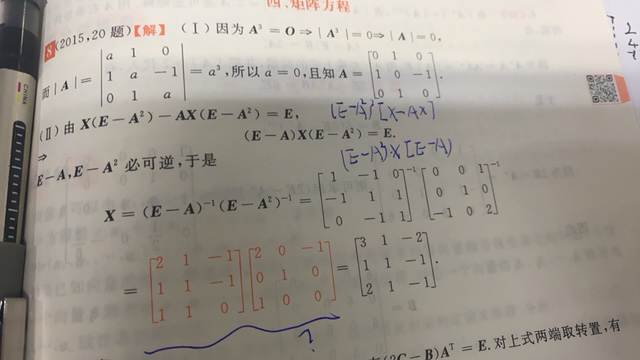 四、矩阵方程
8 (2015,20 题)【解】 (Ⅰ)因为 A³ = O ⇒ | A³ | = 0 ⇒ | A | = 0,
而 | A | = | a 1 0 ; 1 a −1 ; 0 1 a | = a³, 所以 a = 0, 且知 A = [ 0 1 0 ; 1 0 −1 ; 0 1 0 ].
(Ⅱ) 由 X(E − A²) − AX(E − A²) = E, (E−A²)[X−AX]
⇒ (E − A)X(E − A²) = E.
(E−A²)X[E−A)
E − A, E − A² 必可逆, 于是
X = (E − A)⁻¹(E − A²)⁻¹ = [ 1 −1 0 ; −1 1 1 ; 0 −1 1 ]⁻¹ [ 0 0 1 ; 0 1 0 ; −1 0 2 ]⁻¹
= [ 2 1 −1 ; 1 1 −1 ; 1 1 0 ] [ 2 0 −1 ; 0 1 0 ; 1 0 0 ] = [ 3 1 −2 ; 1 1 −1 ; 2 1 −1 ].
?
(2C − B)Aᵀ = E. 对上式两端取转置, 有
CHINA